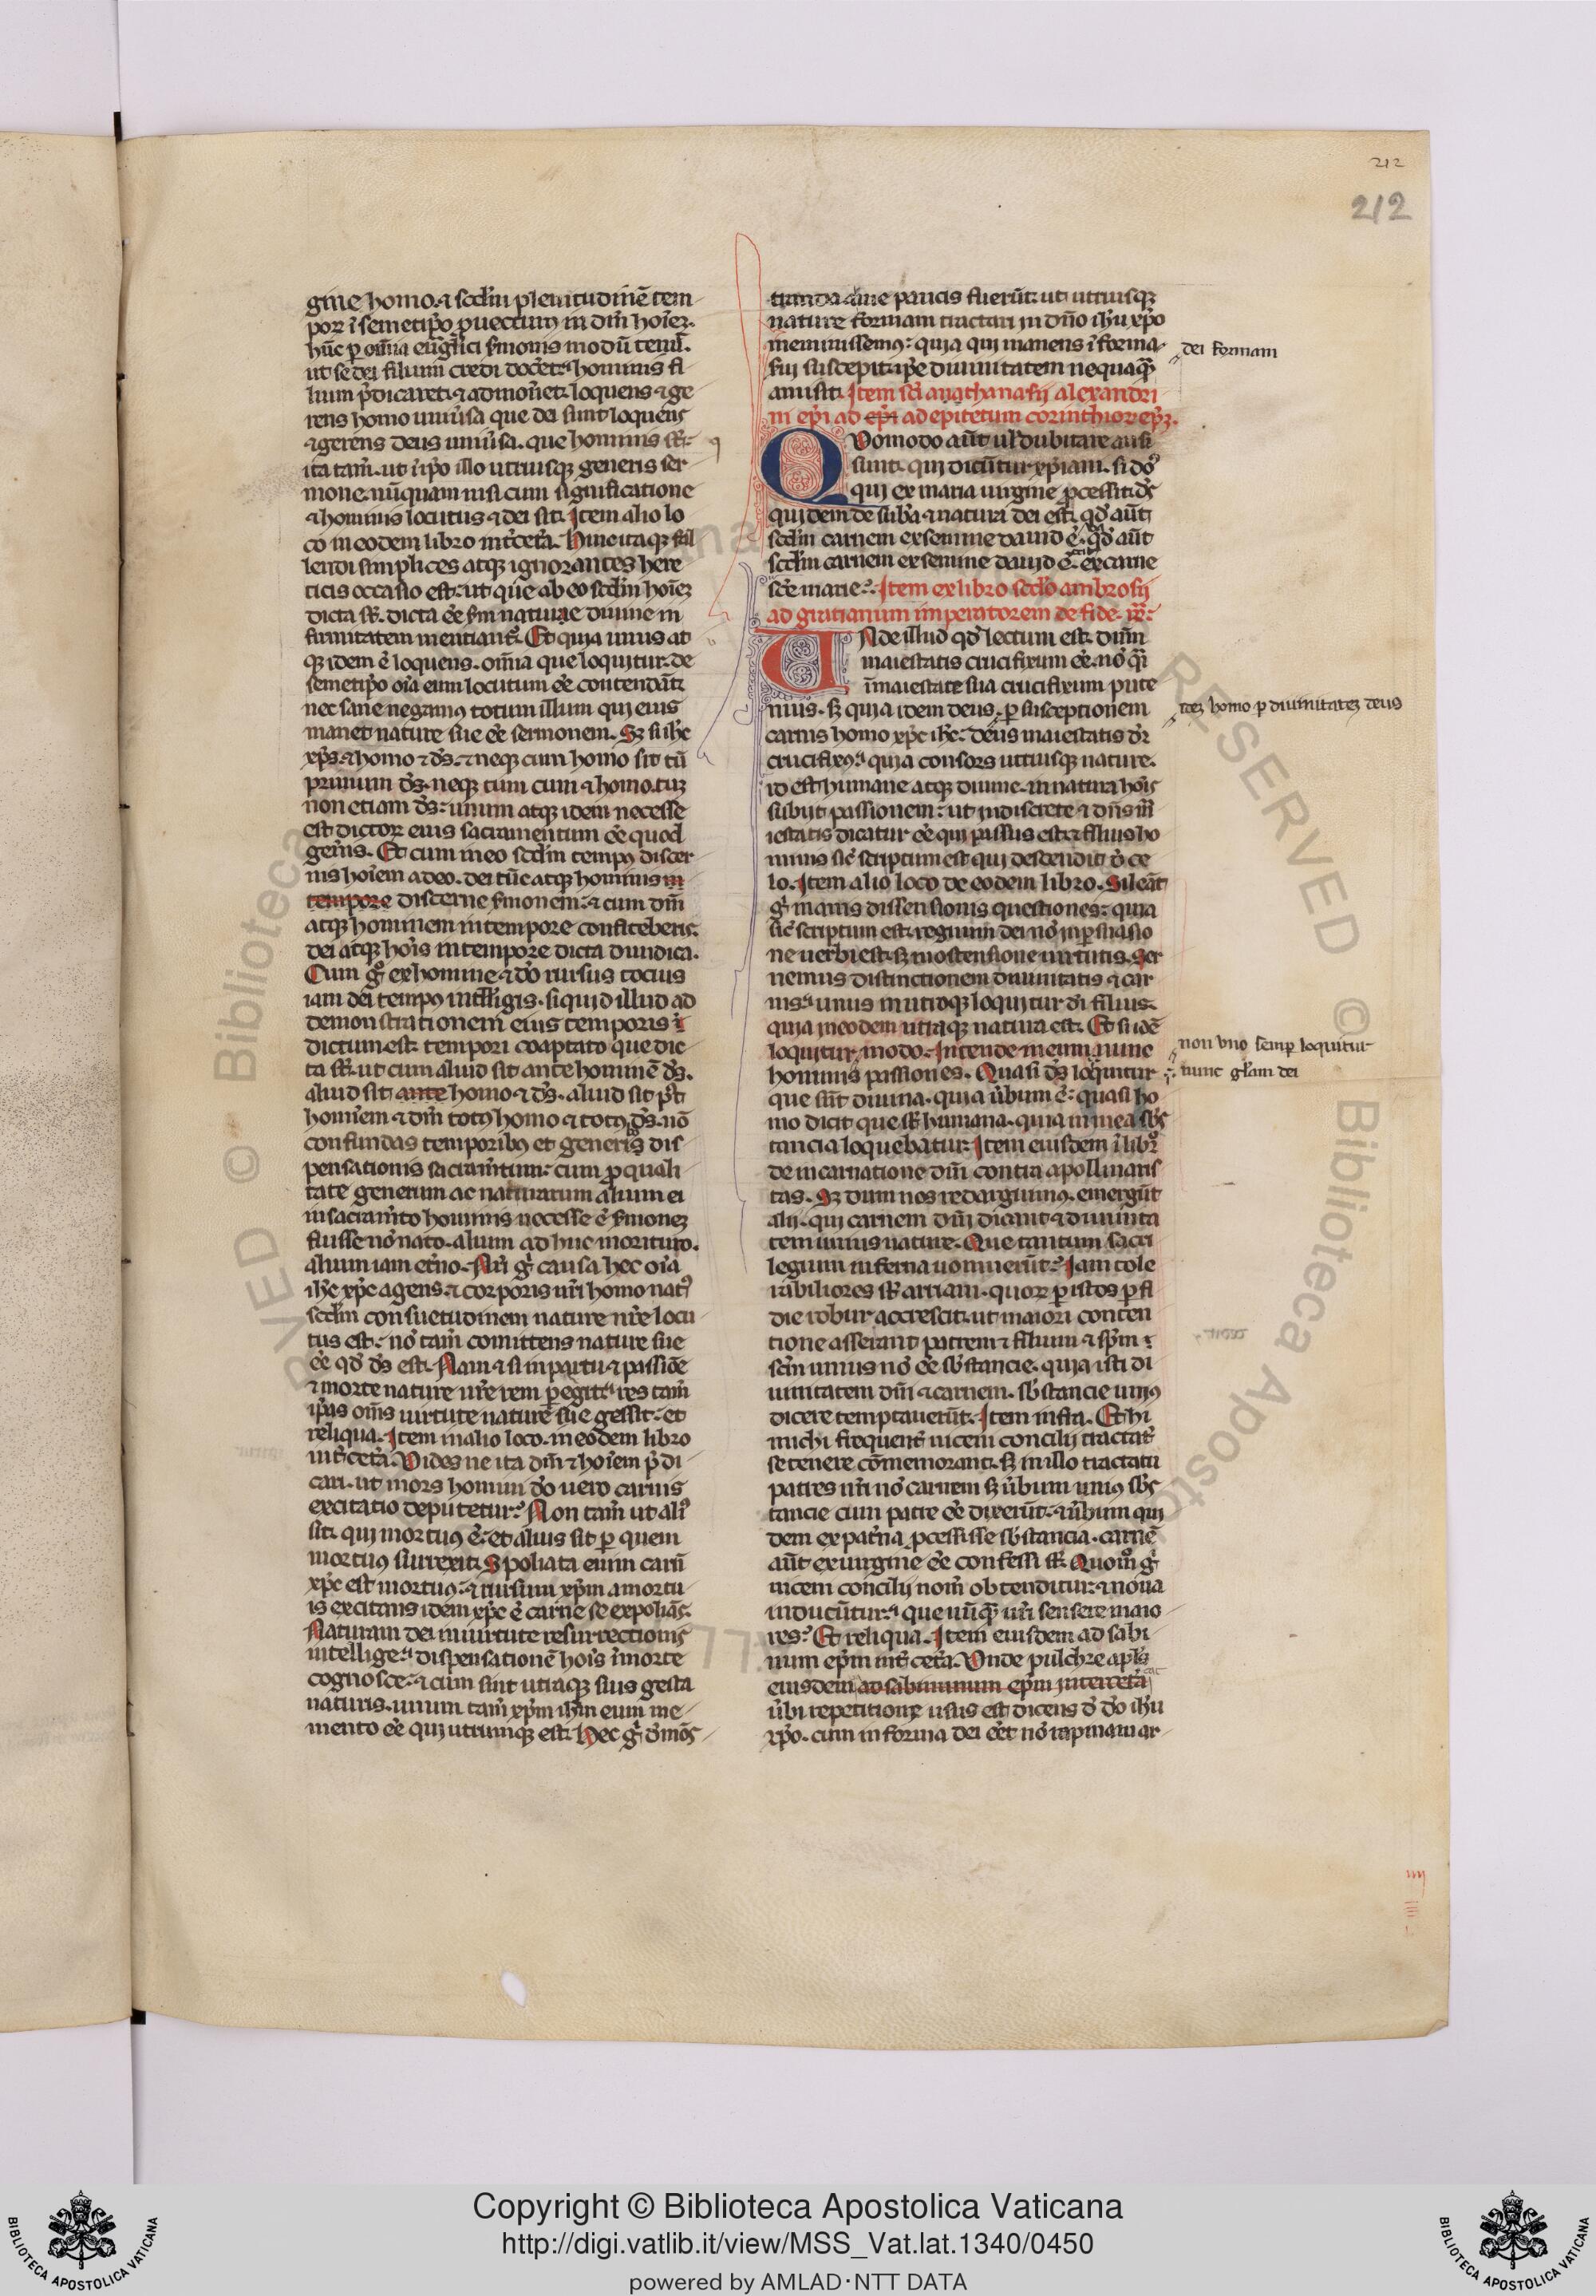 212
212
gine homo. ⁊ scdm plenitudinē tem
por̄ ī semetip̄o puectum in dm̄ hoīez.
hūc p om̄ia euglici s̄monis modū tenuī.
ut se dei filium credi docet. ⁊ hominis fi
lium p̄dicaret. ⁊ admonet. loquens ⁊ ge
rens homo uniūsa que dei sunt. loquens
⁊ gerens deus uniūsa. que hominis st̄.
ita tam̄. ut ip̄o illo utriusq; generis ser
mone. nūquam nisi cum significatione
⁊ hominis locutus ⁊ dei sit. Item alio lo
co in eodem libro int̄ cet̄a. Hinc itaq; fal
lendi simplices atq; ignorantes here
ticis occasio est. ut que ab eo scdm hoīez
dicta st̄. dicta ēe s̄m nature diuine in
firmitatem mentiant̄. Et quia unus at
q; idem ē loquens. om̄ia que loquitur. de
semetip̄o oīa eum locutum ēe contendāt.
nec sane negamꝰ totum illum qui eius
manet nature sue ēe sermonem. Sz si ih̄c
xp̄s. ⁊ homo ⁊ ds̄. ⁊ neq; cum homo sit tū
primum ds̄. neq; tum cum ⁊ homo. tuz
non etiam ds̄. unum atq; idem necesse
est dictor̄ eius sacramentum ēe quod
gen̄is. Et cum in eo scdm tempꝰ discer
nis hoīem a deo. dei tūc atq; hominis in
tempore discerne s̄monem. ⁊ cum dm̄
atq; hominem in tempore confiteberis.
dei atq; hoīs in tempore dicta diiudica.
Cum g̊ ex homine ⁊ dō rursus tocius
iam dei tempꝰ intelligis. si quid illud ad
demonstrationem eius temporis ī
dictum est. tempori coaptato que dic
ta st̄. ut cum aliud sit ante hominē ds̄.
aliud sit ante homo ⁊ ds̄. aliud sit pt̄
hom̄em ⁊ dm̄ totꝰ homo ⁊ totꝰ ds̄. nō
confundas temporibꝰ et generis dis
pensationis sacram̄tum. cum p quali
tate generum ac naturarum alium ei
in sacram̄to hominis necesse ē s̄monez
fuisse nō nato. alium ad huc morituro.
alium iam et̄no. Nr̄i g̊ causa hec oīa
ih̄c xp̄c agens. ⁊ corporis nr̄i homo natꝰ
scdm consuetudinem nature nr̄e locu
tus est. nō tam̄ comittens nature sue
ēe qd̄ ds̄ est. Nam ⁊ si in partu ⁊ passiōe
⁊ morte nature nr̄e rem pegit. res tam̄
ip̄as om̄s uirtute nature sue gessit. et
reliqua. Item in alio loco. in eodem libro
int̄ cet̄a. Vides ne ita dm̄ ⁊ hoīem p̄di
cari. ut mors homini dō uero carnis
excitatio deputetur. Non tam̄ ut aliꝰ
sit. qui mortuꝰ ē. et alius sit p quem
mortuꝰ surrexit. Spoliata enim carn̄
xp̄c est mortuꝰ. ⁊ rursum xp̄m a mortu
is excitans idem xp̄c ē carne se expoliās.
Naturam dei in uirtute resurrectionis
intellige. dispensationē hoīs ī morte
cognosce. ⁊ cum sint utraq; suis gesta
naturis. unum tam̄ xp̄m ih̄m eum me
mento ēe qui utrumq; est. Hec g̊
tranda sane paucis fuerūt. ut utriusq;
nature formam tractari in dn̄o ih̄u xp̄o
meminissemꝰ. quia qui manens ī forma
sui suscepit. ip̄e diuinitatem nequaq̄
amisit. Item sc̄i anathanasii alexandri
ni ep̄i ad ep̄i ad epitetum corinthior̄ ep̄z.
Quomodo aūt ul̄ dubitare ausi
sunt. qui dicūtur xp̄iani. si dō
qui ex maria uirgine p̄cessit. ds̄
quidem de sub̄a ⁊ natura dei est. qd̄ aūt
scdm carnem ex semine dauid ē. qd̄ aūt
scdm carnem ex semine dauid ē. ex carne
sc̄e marie. Item ex libro sc̄do ambrosii
ad gratianum imperatorem de fide.
Unde illud qd̄ lectum est. dnm̄
maiestatis crucifixum ēe. nō q̄i
ī maiestate sua crucifixum pute
mus. sz quia idem deus. p susceptionem
carnis homo xp̄c ih̄c. deus maiestatis dr̄
crucifixꝰ. quia consors utriusq; nature.
id est humane atq; diuine. in natura hoīs
subiit passionem. ut indiscrete ⁊ dn̄s m̄
iestatis dicatur ēe qui passus est. ⁊ filius ho
minis sic̄ scriptum est qui descendit d̄ ce
lo. Item alio loco de eodem libro. Sileāt
g̊ inanis dissensionis questiones. quia
sic̄ scriptum est. regnum dei nō in p̄suasio
ne uerbi est. sz in ostensione uirtutis. Ser
uemus distinctionem diuinitatis ⁊ car
nis. unus in utroq; loquitur dī filius.
quia in eodem utraq; natura est. Et si idē
loquitur. modo. Intende in eum. nunc
hominis passiones. Quasi ds̄ loquitur
que sūt diuina. quia ūbum ē. quasi ho
mo dicit que st̄ humana. quia in mea sb̄s
tancia loquebatur. Item eiusdem ī libr̄
de incarnatione dn̄i contra apollinaris
tas. Sz dum nos redarguimꝰ. emergūt
alii. qui carnem dn̄i dicant ⁊ diuinita
tem unius nature. Que tantum sacri
legium inferna uomuerūt. Iam tole
rabiliores st̄ arriani. quor̄ p istos p fi
die robur accrescit. ut maiori conten
tione asserant patrem ⁊ filium ⁊ sp̄m ⁊
sc̄m unius nō ēe sb̄stancie. quia isti di
uinitatem dn̄i ⁊ carnem. sb̄stancie uniꝰ
dicere temptauerūt. Item infra. Et hi
michi frequent̄ niceni concilii tractat̄
se tenere cōmemorant. sz in illo tractatu
patres nr̄i nō carnem sz ūbum uniꝰ sb̄s
tancie cum patre ēe dixerūt. ⁊ ūbum qui
dem ex pat̄na p̄cessisse sb̄stancia. carnē
aūt ex uirgine ēe confessi st̄. Quom̊ g̊
niceni concilii nom̄ obtenditur. ⁊ noua
inducūtur. que nūq̄ nr̄i sensere maio
res. Et reliqua. Item eiusdem ad sabi
num ep̄m int̄ cet̄a. Vnde pulchre apl̄s
eiusdem ad sabinnum ep̄m inter cetera
ūbi repetitione usus est dicens d̄ dō ih̄u
xp̄o. cum in forma dei eēt nō rapinam ar
dei formam
tez homo p diuinitatez deus
non vno semp loquitur
nunc gl̄am dei
Copyright © Biblioteca Apostolica Vaticana
http://digi.vatlib.it/view/MSS_Vat.lat.1340/0450
powered by AMLAD·NTT DATA
BIBLIOTECA APOSTOLICA VATICANA
BIBLIOTECA APOSTOLICA VATICANA